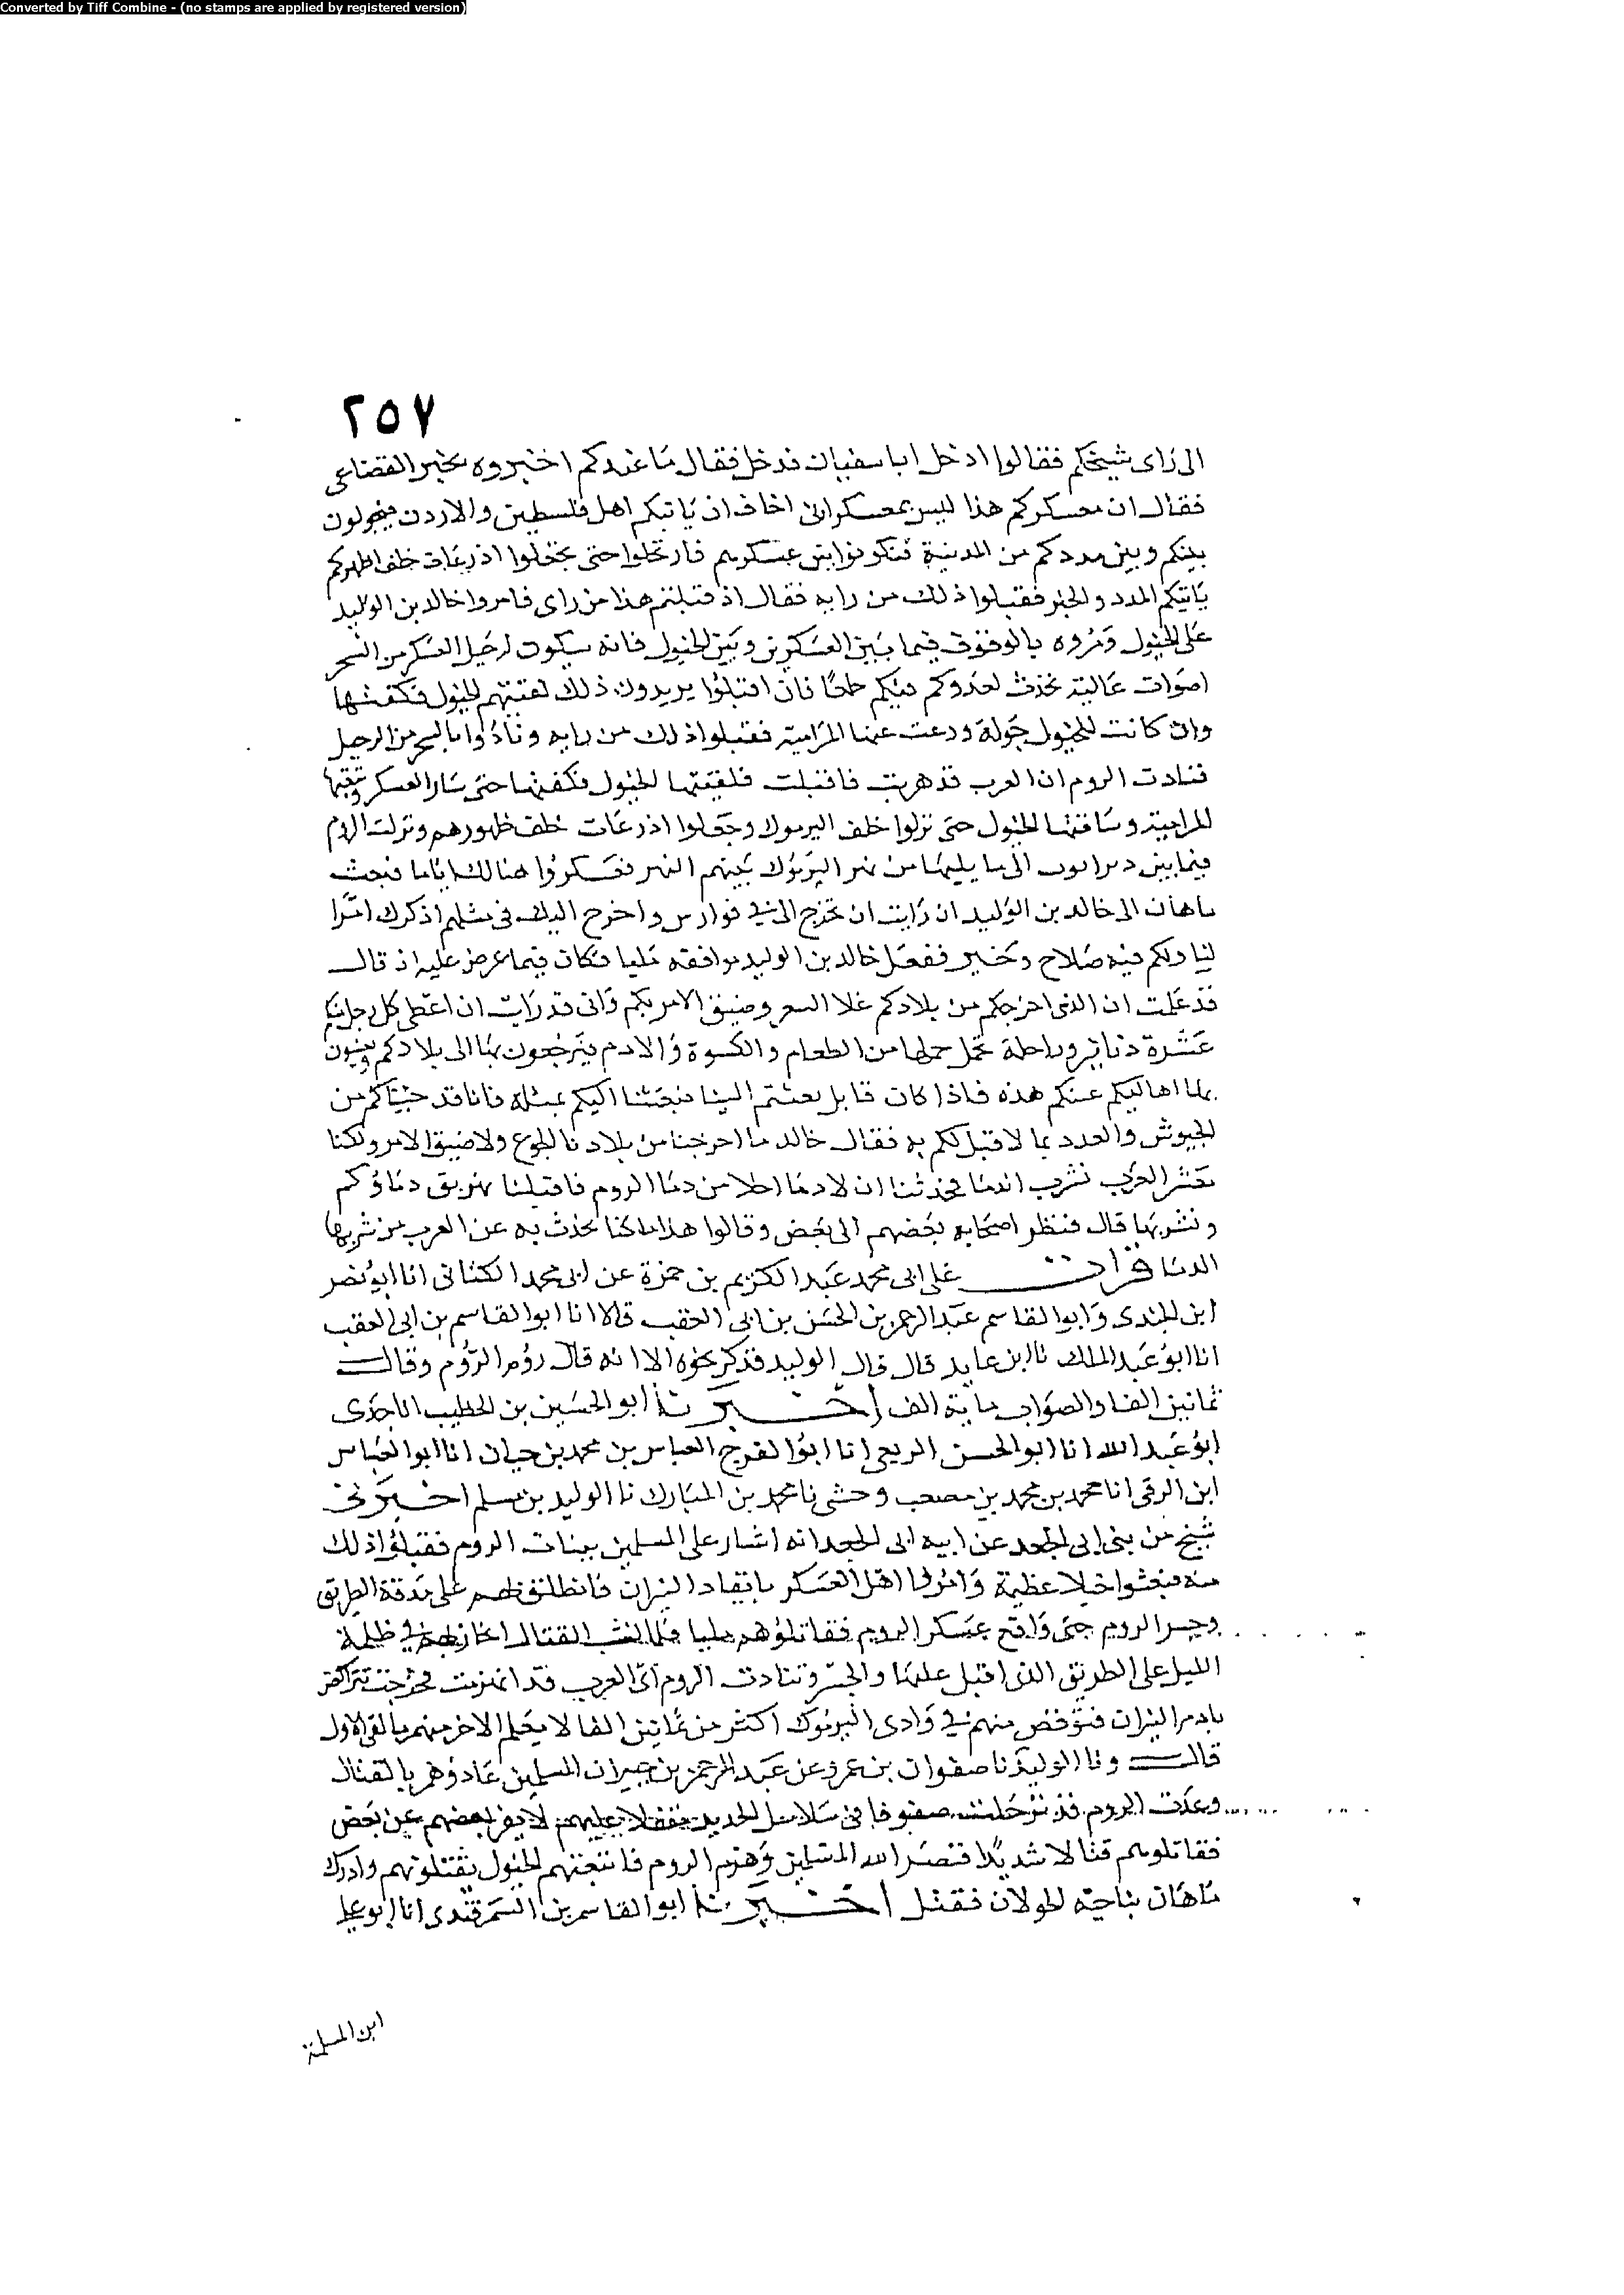 Converted by Tiff Combine - (no stamps are applied by registered version)
٢٥٧
الى راى شيخكم فقالوا ادخل ابا سفيان فدخل فقال ما عندكم اخبروه بخبر القضاعى
فقال ان معسكركم هذا ليس بمعسكر انى اخاف ان ياتيكم اهل فلسطين والاردن فيحولون
بينكم وبين مددكم من المدينة فتكونوا بين عسكرهم فارتحلوا حتى تجعلوا اذرعات خلف اظهركم
ياتيكم المدد والخبر فقبلوا ذلك من رايه فقال اذ قبلتم هذا من راى فامروا خالد بن الوليد
على الخيول ومروه بالوقوف فيما بين العسكرين وبين الخيول فانه سيكون لرحيل العسكر من السحر
اصوات عالية تحدث لعدوكم فيكم طمعا فان اقبلوا يريدون ذلك لقيتهم الخيول فكفتها
وان كانت للخيول جولة ودعت عنها المرامية فقبلوا ذلك من رايه ونادوا بالسحر من الرحيل
فنادت الروم ان العرب قد هربت فاقبلت فلقيتها الخيول فكفتها حتى سار العسكر وتبعتها
المرامية وساقتها الخيول حتى نزلوا خلف اليرموك وجعلوا اذرعات خلف ظهورهم ونزلت الروم
فيما بين دير ايوب الى ما يليها من نهر اليرموك بينهم النهر فعسكروا هنالك اياما فبعث
ماهان الى خالد بن الوليد ان رايت ان تخرج الى فى فوارس واخرج اليك فى مثلهم اذكر لك امرا
لنا ولكم فيه صلاح وخير ففعل خالد بن الوليد فوافقه مليا فكان فيما عرض عليه اذ قال
قد علمت ان الذى اخرجكم من بلادكم غلا السعر وضيق الامر بكم وانى قد رايت ان اعطى كل رجل منكم
عشرة دنانير وراحلة تحمل حملها من الطعام والكسوة والادم فترجعون بها الى بلادكم وتعيشون
بها اهاليكم عنكم هذه فاذا كان قابل بعثتم الينا فبعثنا اليكم بمثله فانا قد جيناكم من
الجيوش والعدد بما لا قبل لكم به فقال خالد ما اخرجنا من بلادنا الجوع ولا ضيق الامر ولكنا
معشر العرب نشرب الدما فحدثنا ان لا دما احلا من دما الروم فاقبلنا نهريق دماؤكم
ونشربها قال فنظر اصحابه بعضهم الى بعض وقالوا هذا ما كنا نحدث به عن العرب من شربها
الدما قرات على ابى محمد عبد الكريم بن حمزة عن ابى محمد الكتانى انا ابو نصر
ابن الجندى وابو القاسم عبد الرحمن بن الحسن بن ابى العقب قالا انا ابو القاسم بن ابى العقب
انا ابو عبد الملك نا ابن عايد قال قال الوليد فذكر نحوه الا انه قال رؤم الروم وقال
ثمانين الفا والصواب ماية الف اخبرنا ابو الحسين بن الخطيب انا جدى
ابو عبد الله انا ابو الحسن الربعى انا ابو الفرج العباس بن محمد بن حيان انا ابو العباس
ابن الزفتى انا محمد بن محمد بن مصعب وحشى نا محمد بن المبارك نا الوليد بن مسلم اخبرنى
شيخ من بنى ابى الجعد عن ابيه ابى الجعد انه اشار على المسلمين ببنات الروم فقبلوا ذلك
منه فبعثوا خيلا عظيمة وامروا اهل العسكر بايقاد النيران فانطلق بهم على مدقة الطريق
وجسر الروم حتى واقع عسكر الروم فقاتلوهم مليا فلما نشب القتال انحاز بهم فى ظلمة
الليل على الطريق الذى اقبل عليها والجسر وتنادت الروم ان العرب قد انهزمت فخرجت تتراكض
النيران فتوقص منهم فى وادى اليرموك اكثر من ثمانين الفا لا يعلم الاخر منهم بالقى الاول
قال ونا الوليد نا صفوان بن عمرو عن عبد الرحمن بن جبير ان المسلمين غادوهم بالقتال
وغدت الروم قد ترجلت صفوفا فى سلاسل الحديد لا يفر بعضهم عن بعض
فقاتلوهم قتالا شديدا فنصر الله المسلمين وهزم الروم فاتبعتهم الخيول يقتلونهم وادرك
ماهان بناحية الجولان فقتل اخبرنا ابو القاسم بن السمرقندى انا ابو على
ابن المسلمة